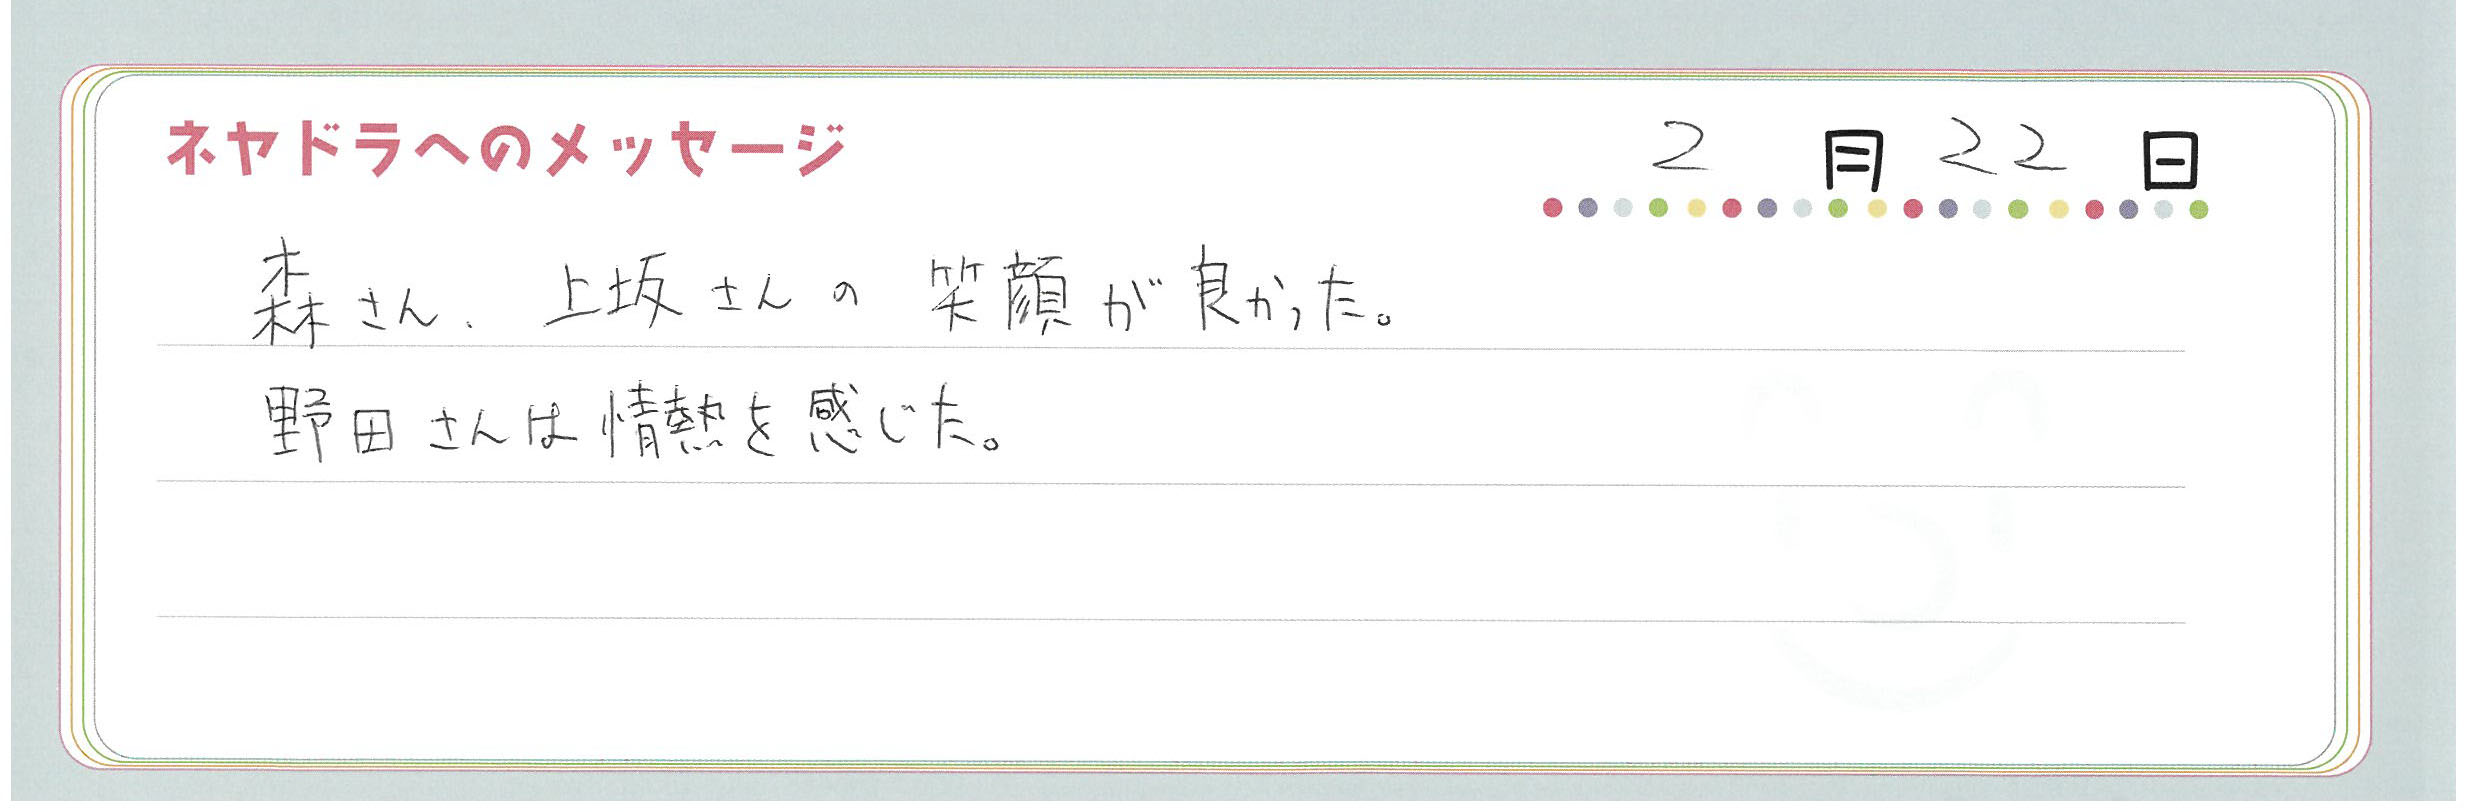 ネヤドラへのメッセージ
2月22日
森さん、上坂さんの笑顔が良かった。
野田さんは情熱を感じた。